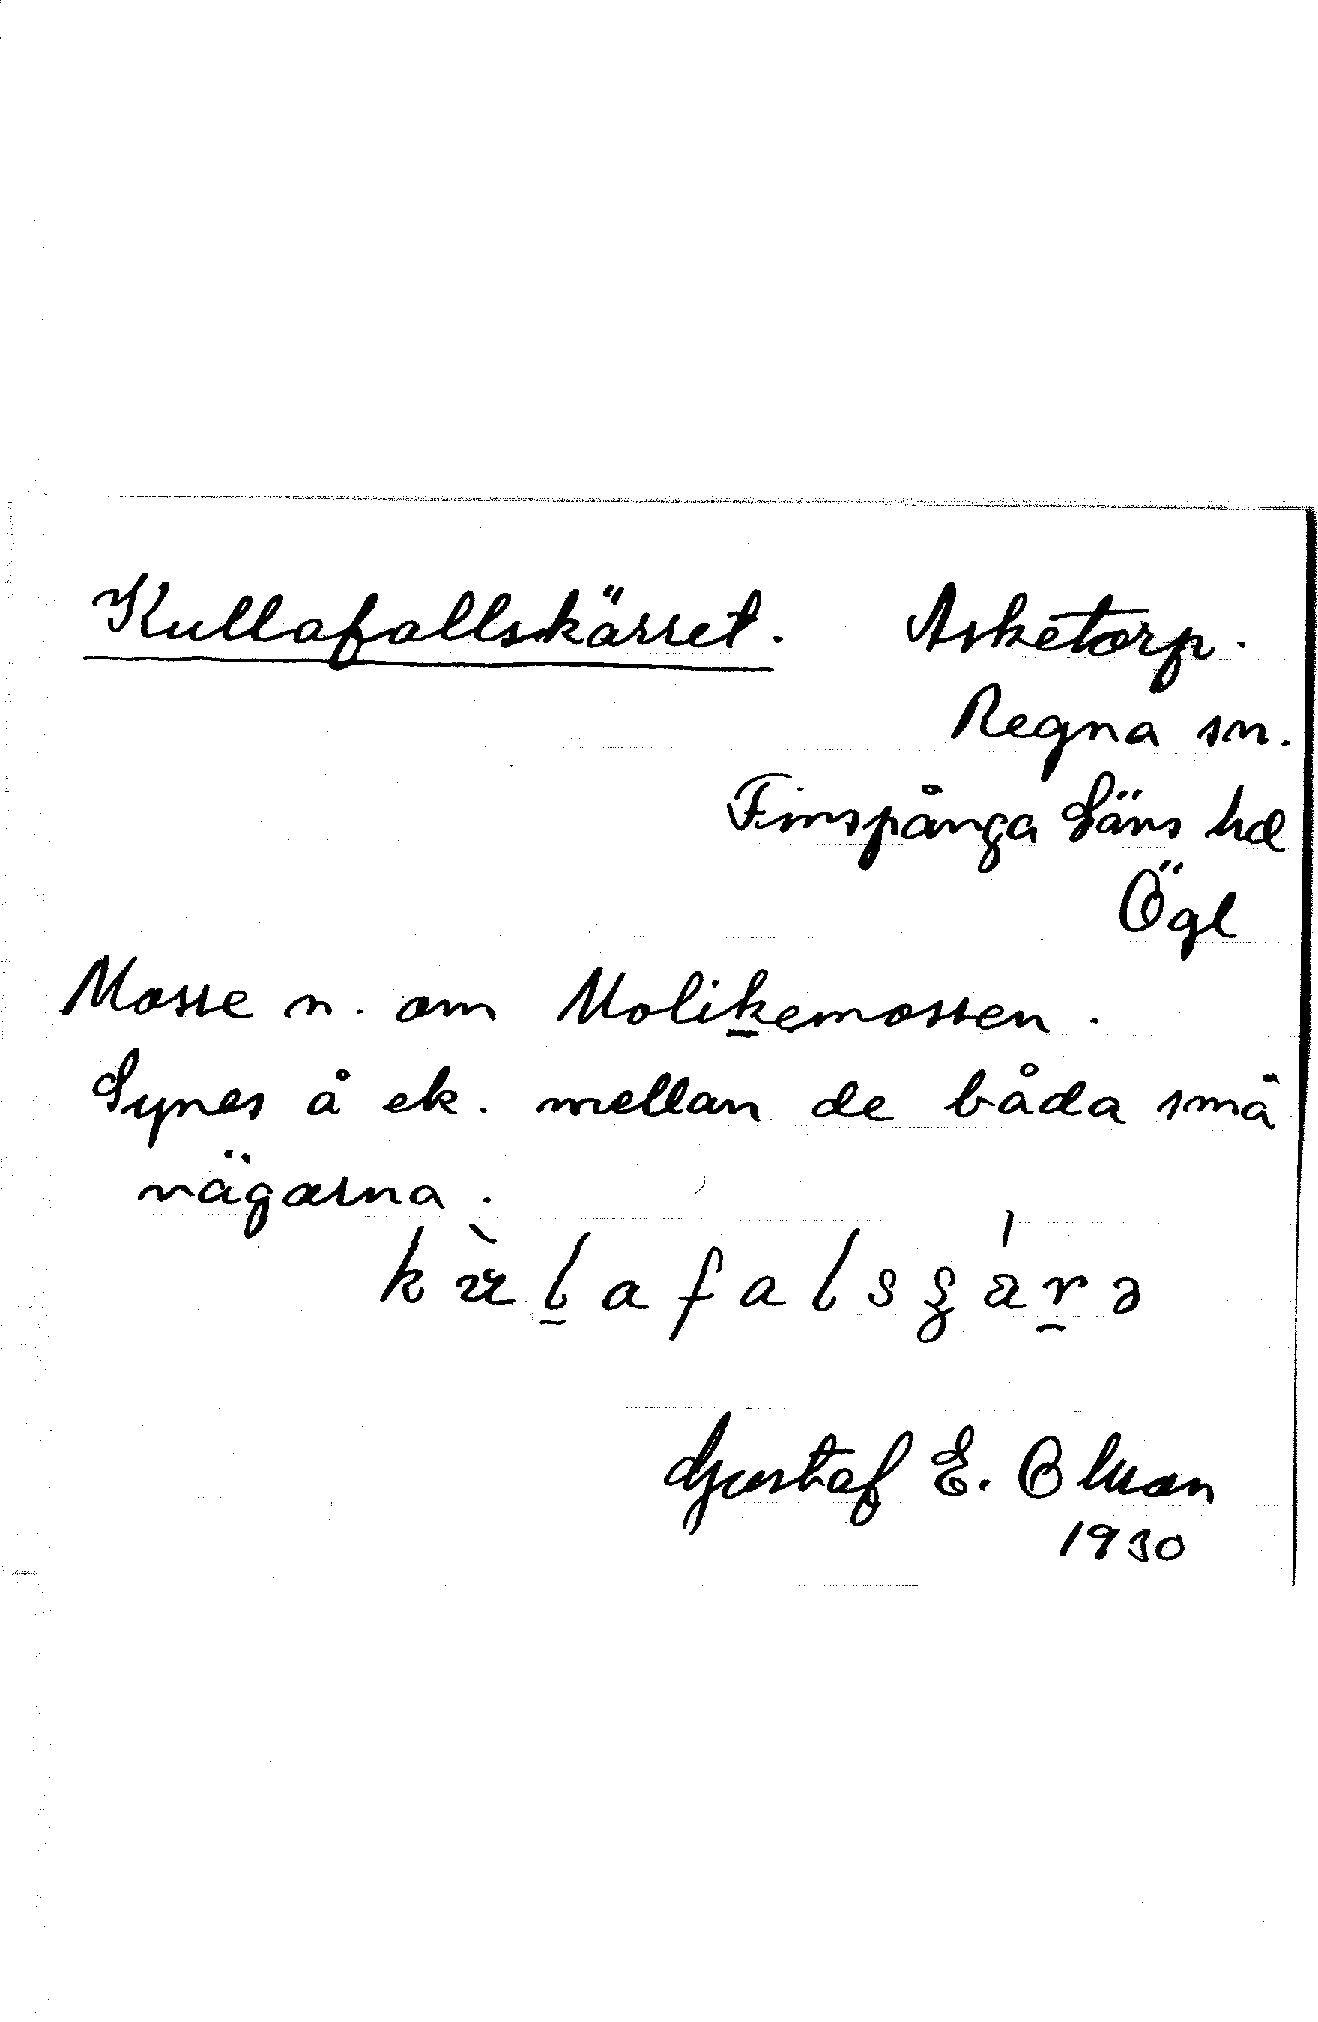 Kullafallskärret. Asketorp.
Regna sn.
Finspånga läns hd
Ögl
Mosse n. om Molikemossen.
Synes å ek. mellan de båda små
vägarna.
Gustaf E. Olsson
1930